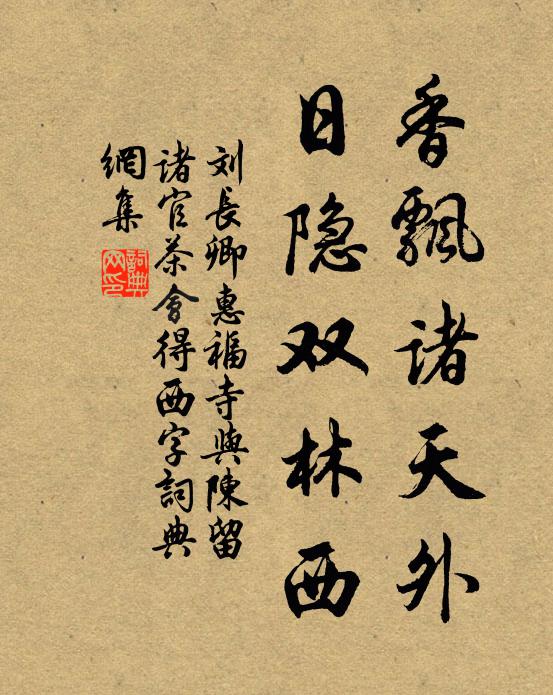 香飄诸天外
日隐双林西
刘長卿惠福寺與陳留
诸官茶會得西字詞典
網集
詞典網印